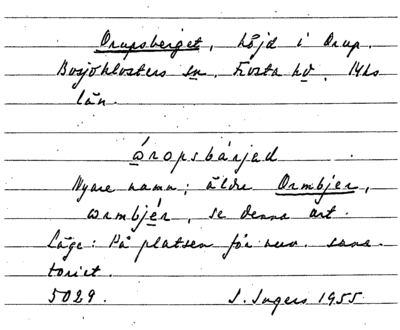 Orupsberget, höjd i Orup.
Bosjöklosters sn. Frosta hd. Mhs
län.
òropsbärjad
Nyare namn; äldre Ormbjer,
ormbjér, se denna art.
Läge: På platsen för nuv. sana-
toriet.
5029. I. Ingers 1955